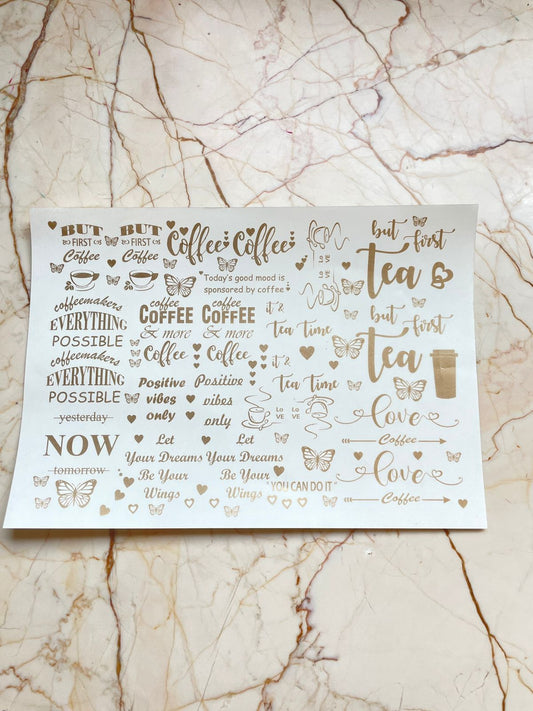 BUT
FIRST
Coffee
BUT
FIRST
Coffee
Coffee
Coffee
Today's good mood is
sponsored by coffee
LO
VE
but
first
tea
coffeemakers
EVERYTHING
POSSIBLE
coffeemakers
EVERYTHING
POSSIBLE
coffee
COFFEE
& more
coffee
COFFEE
& more
Coffee
Coffee
it's
Tea Time
it's
Tea Time
but
first
tea
Positive
vibes
only
Positive
vibes
only
LO
VE
love
Coffee
love
Coffee
yesterday
NOW
tomorrow
Let
Your Dreams
Be Your
Wings
Let
Your Dreams
Be Your
Wings
YOU CAN DO IT